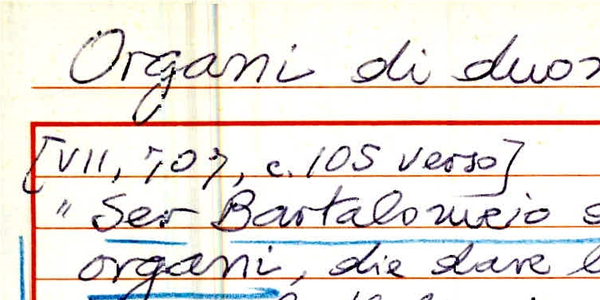 Organi di duo
[VII, 707, c. 105 verso]
" Ser Bartalomeio
organi, die dare